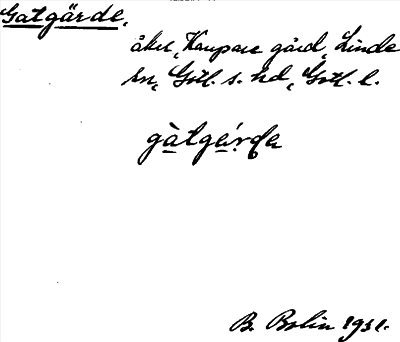 Gatgärde,
åker, Kaupare gård, Linde
sn, Gotl. s. hd, Gotl. l.
gàtg̀érda
B. Bolin 1931.